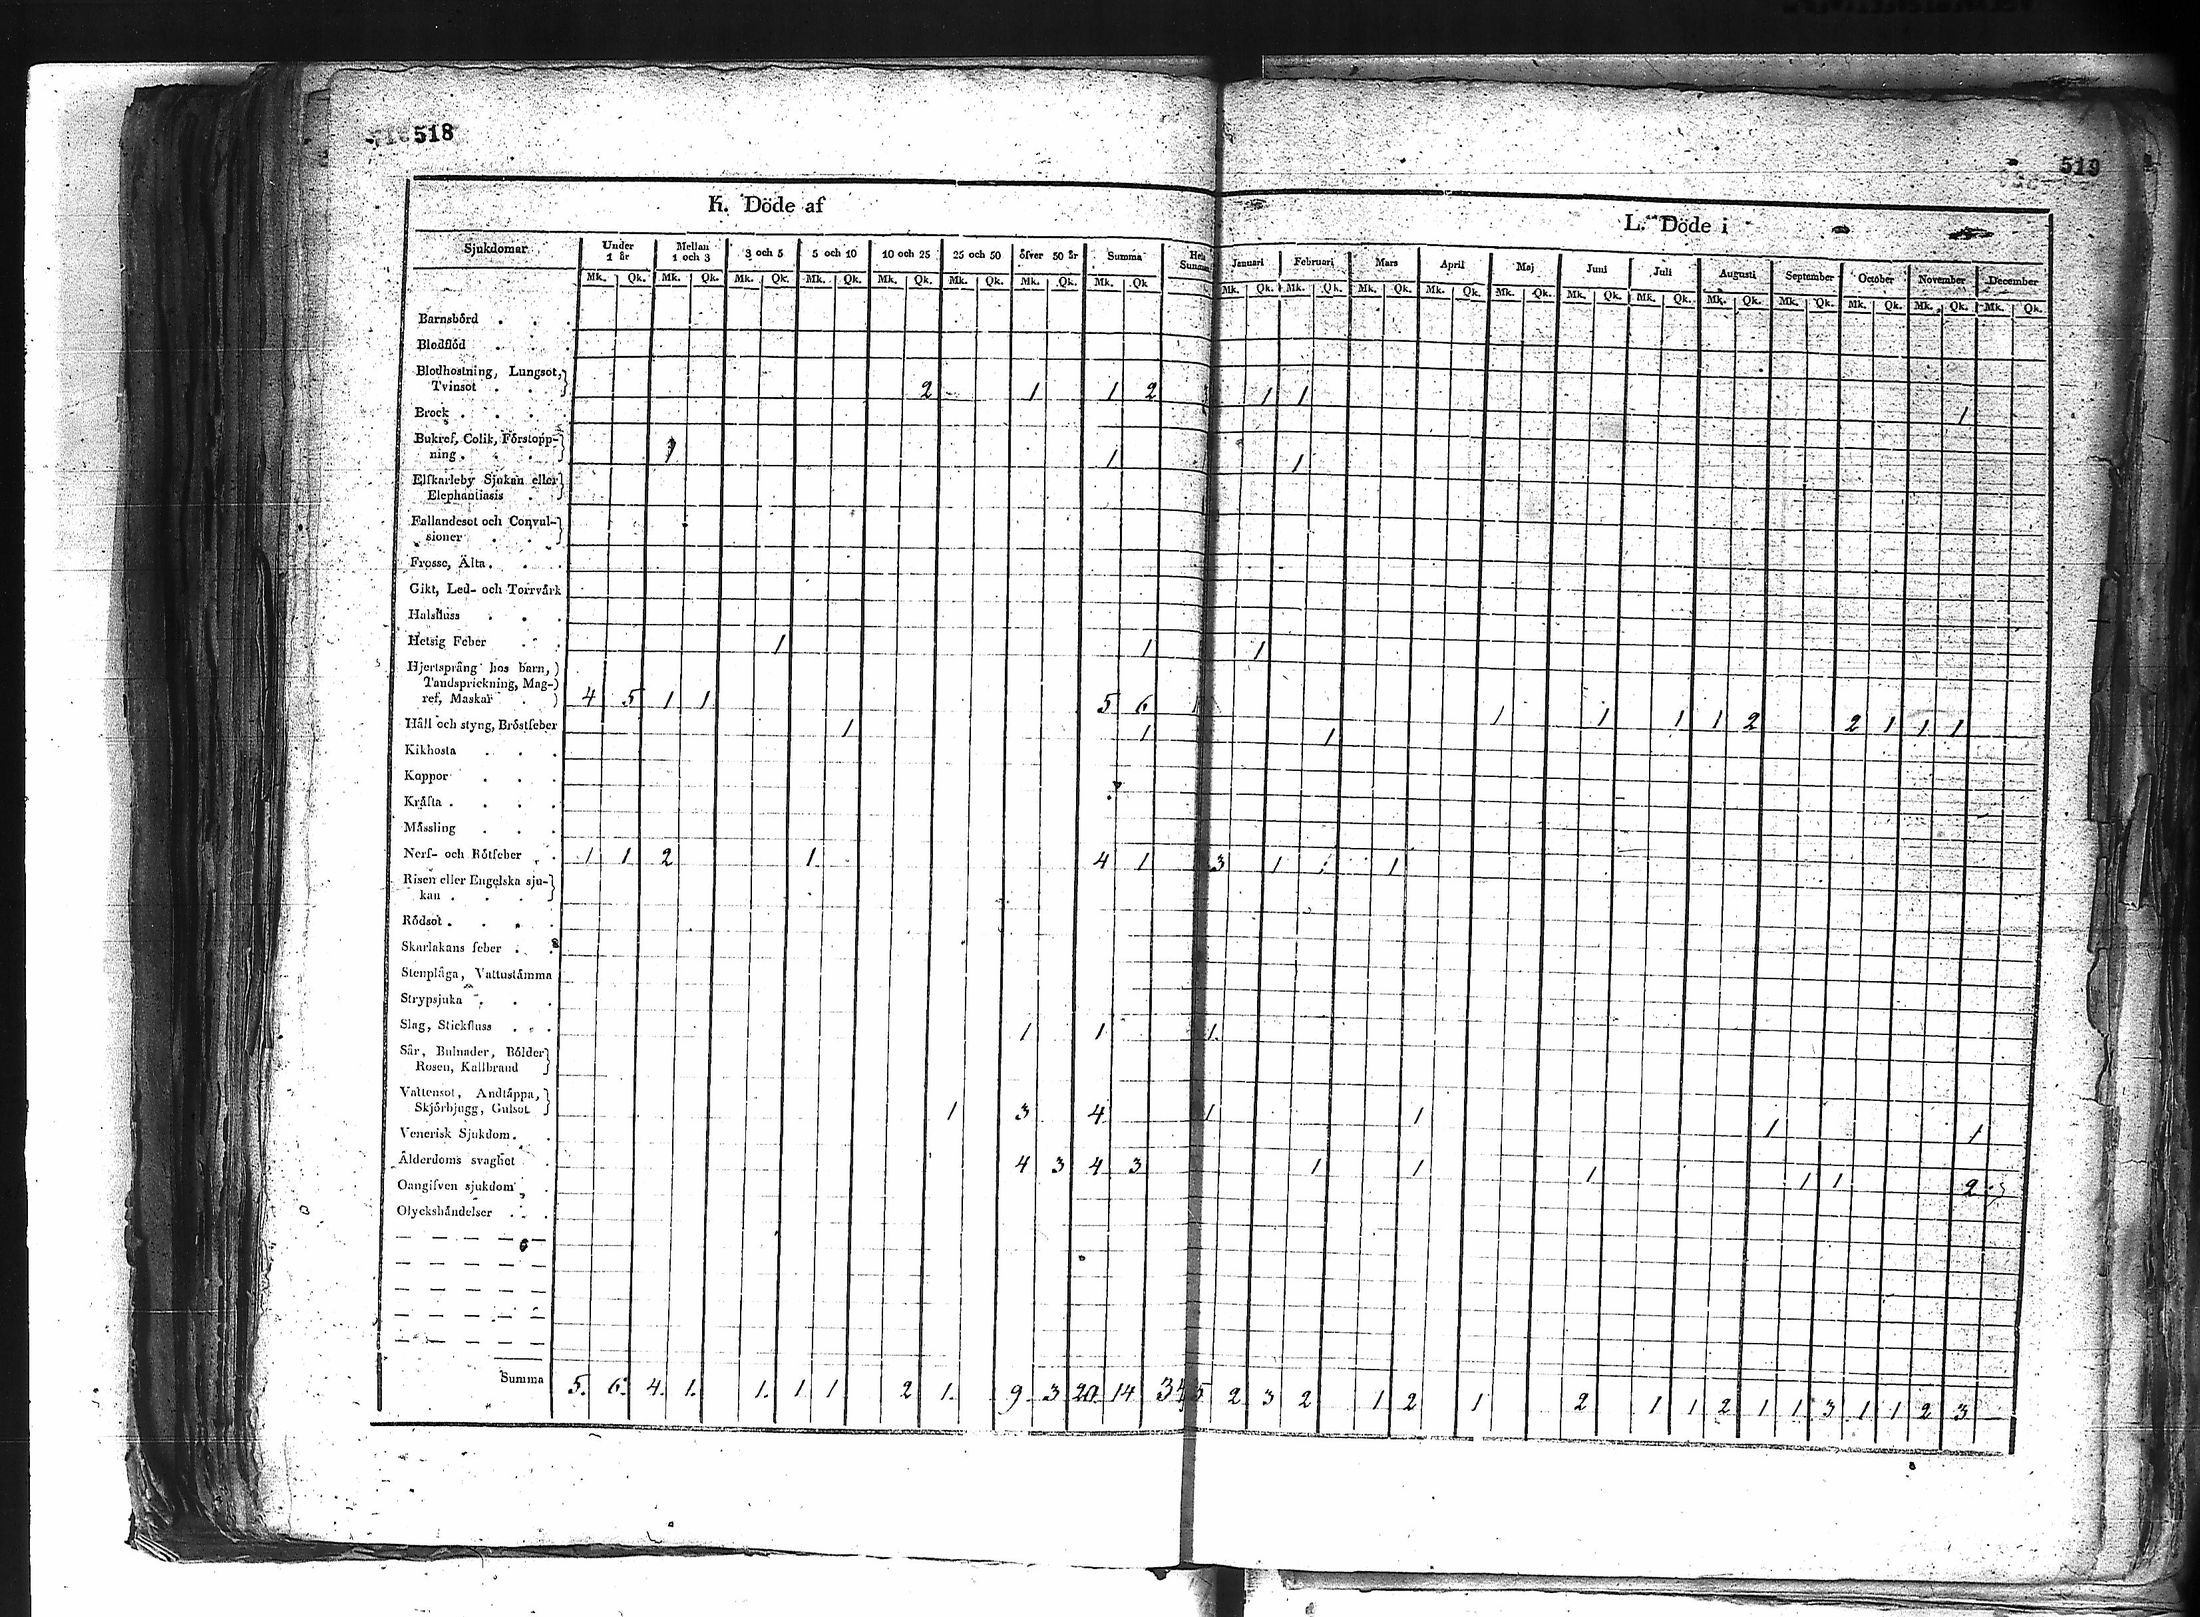 518
519
K. Döde af
L. Döde i
Sjukdomar Under 1 år Mellan 1 och 3 3 och 5 5 och 10 10 och 25 25 och 50 öfver 50 år Summa Januari Februari Mars April Maj Juni Juli Augusti September October November December
Mk. Qk. Mk. Qk. Mk. Qk. Mk. Qk. Mk. Qk. Mk. Qk. Mk. Qk. Mk. Qk Mk. Qk. Mk. Qk. Mk. Qk. Mk. Qk. Mk. Qk. Mk. Qk. Mk. Qk. Mk. Qk. Mk. Qk. Mk. Qk. Mk. Qk. Mk. Qk.
Barnsbörd
Blodflöd
Blodhostning, Lungsot,
Tvinsot 2 1 1 2 1 1 1
Brock
Bukref, Colik, Förstopp-
ning 1 1 1
Elfkarleby Sjukan eller
Elephantiasis
Fallandesot och Convul-
sioner
Frosse, Älta
Gikt, Led- och Torrvärk
Halsfluss
Hetsig Feber 1 1 1
Hjertsprång hos barn,
Tandsprickning, Mag-
ref, Maskar 4 5 1 1 5 6 1 1 1 1 2 2 1 1 1
Håll och styng, Bröstfeber 1 1 1
Kikhosta
Koppor
Kräfta
Mässling
Nerf- och Rötfeber 1 1 2 1 4 1 3 1 1
Risen eller Engelska sju-
kan
Rödsot
Skarlakans feber
Stenplåga, Vattustämma
Strypsjuka
Slag, Stickfluss 1 1 1
Sår, Bulnader, Bölder
Rosen, Kallbrand
Vattensot, Andtäppa,
Skjörbjugg, Gulsot 1 3 4 1 1 1 1
Venerisk Sjukdom
Ålderdoms svaghet 4 3 4 3 1 1 1 1 1 2
Oangifven sjukdom
Olyckshändelser
Summa 5. 6. 4. 1. 1. 1 1 2 1. 9. 3 20 14 34 5 2 3 2 1 2 1 2 1 1 2 1 1 3 1 1 2 3